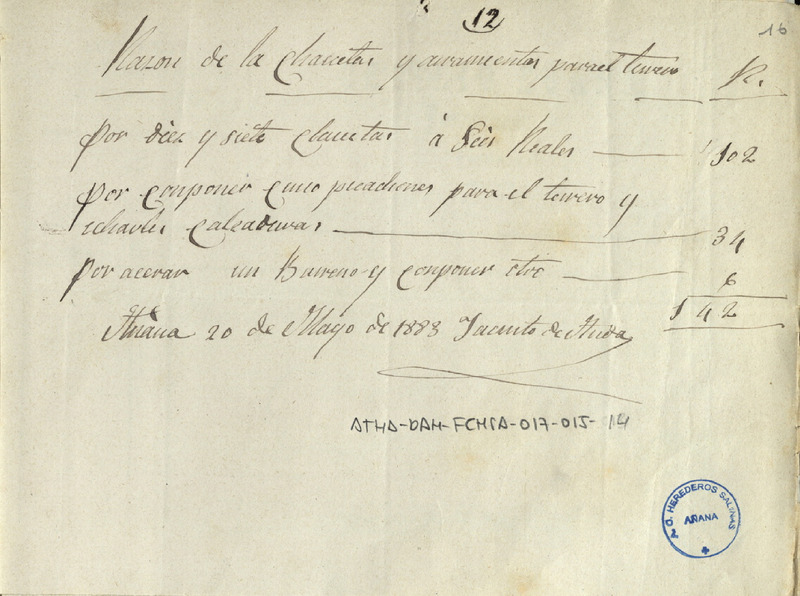 12
16
Razon de la Chavetas y arramientas para el terrero R.
por diez y siete clavetas á Seis Reales 102
por conponer cinco picachones para el terrero y
echarles calzaduras 34
por acerar un Barreno y conponer otro 6
142
Añana 20 de Mayo de 1883 Jacinto de
ATHA-DAH-FCHSA-017-015-14
HEREDEROS SALINAS
AÑANA